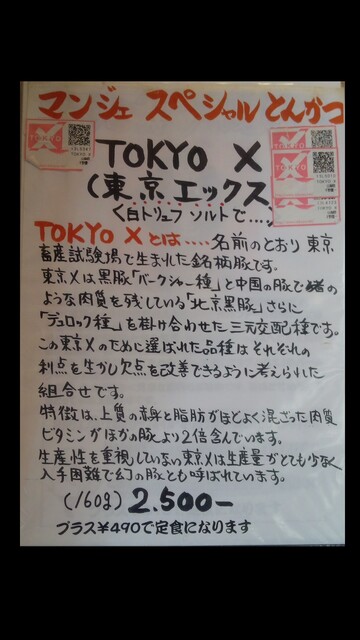 マンジェ スペシャル とんかつ
TOKYO X
(東京エックス
〈白トリュフ ソルトで...〉
TOKYO Xとは‥‥名前のとおり 東京
畜産試験場で生まれた銘柄豚です。
東京Xは黒豚「バークシャー種」と中国の豚で
のような肉質を残している「北京黒豚」さらに
「デュロック種」を掛け合わせた三元交配種です。
この東京Xのために選ばれた品種はそれぞれの
利点を生かし欠点を改善できるように考えられた
組合せです。
特徴は、上質の赤身と脂肪がほどよく混ざった肉質
ビタミンがほかの豚より2倍含んでいます。
生産性を重視していない東京Xは生産量がとても少なく
入手困難で幻の豚とも呼ばれています。
(160g) 2.500-
プラス¥490で定食になります